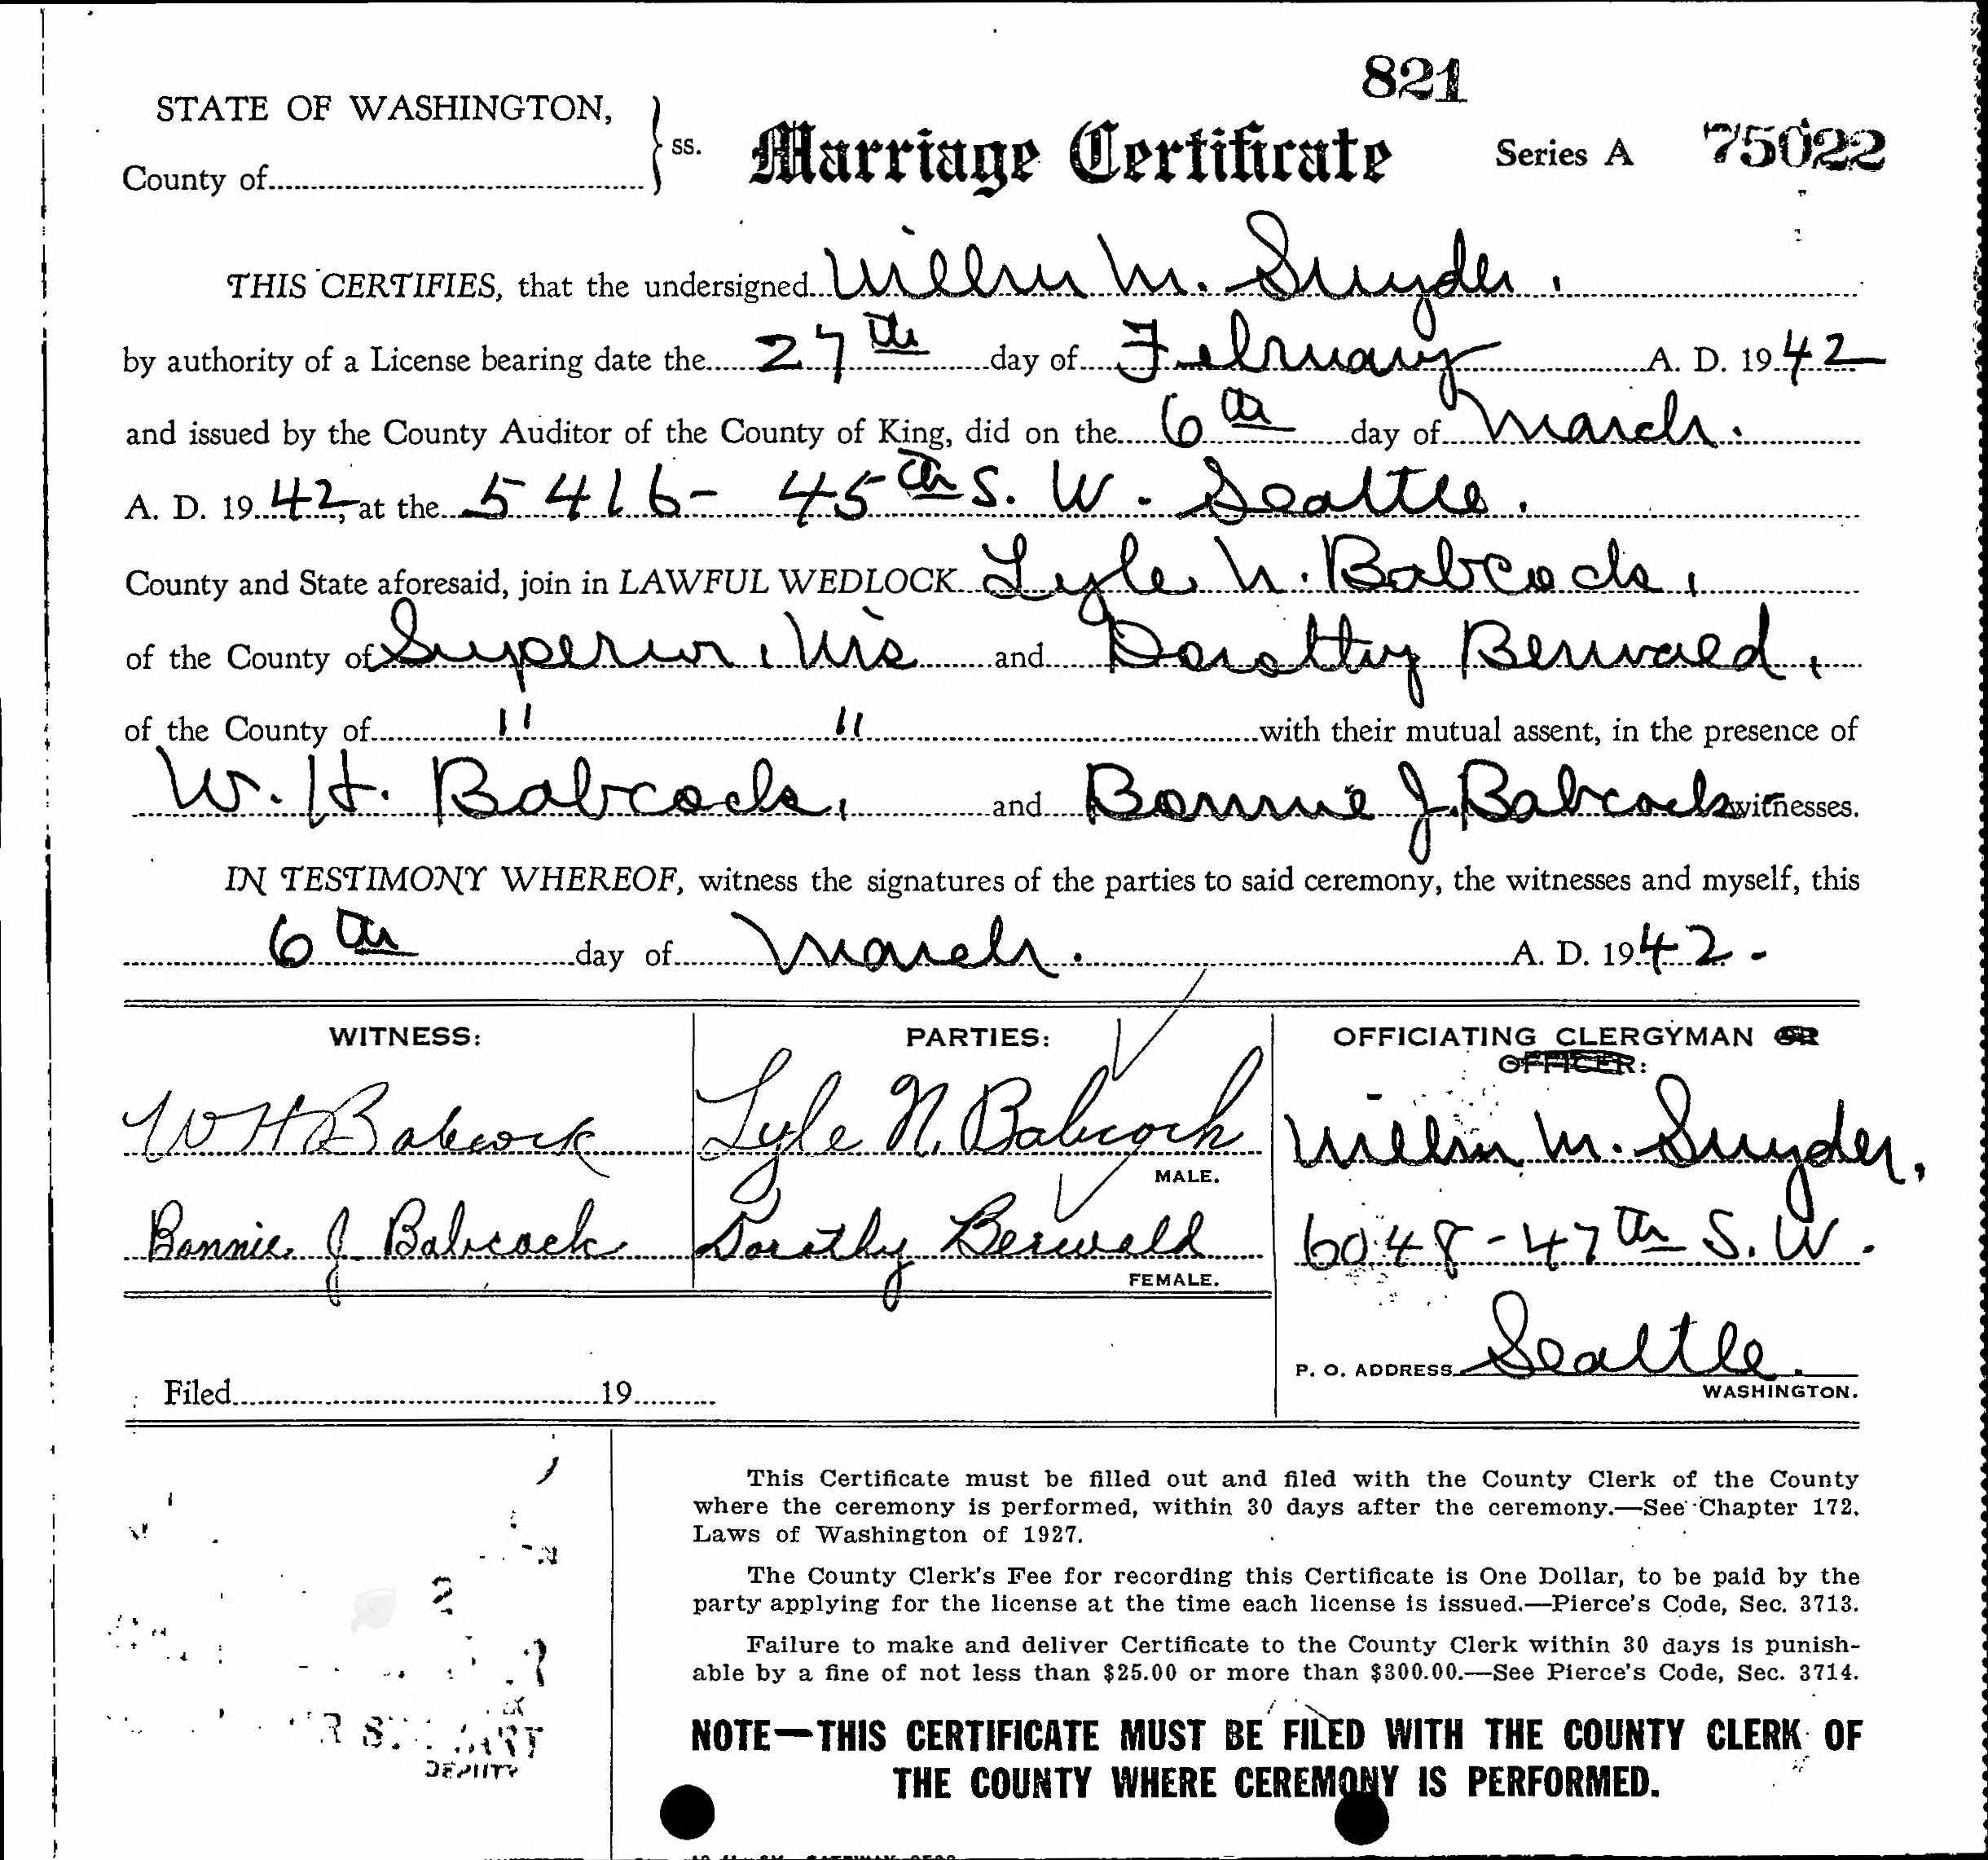 821
STATE OF WASHINGTON,
County of
ss.
Marriage Certificate
Series A 75022
THIS CERTIFIES, that the undersigned M. Snyder.
by authority of a License bearing date the 27th day of February A. D. 1942
and issued by the County Auditor of the County of King, did on the 6th day of March.
A. D. 1942, at the 5416- 45th S. W. Seattle.
County and State aforesaid, join in LAWFUL WEDLOCK Lyle N. Babcock,
of the County of Superior, Wis and Dorothy Berwald,
of the County of " " with their mutual assent, in the presence of
W. H. Babcock, and Bonnie J. Babcock witnesses.
IN TESTIMONY WHEREOF, witness the signatures of the parties to said ceremony, the witnesses and myself, this
6th day of March. A. D. 1942.
WITNESS:
W H Babcock
Bonnie J Babcock
PARTIES:
Lyle N. Babcock
MALE.
Dorothy Berwald
FEMALE.
OFFICIATING CLERGYMAN OR
OFFICER:
M. Snyder,
6048-47th S. W.
Seattle.
P. O. ADDRESS
WASHINGTON.
Filed 19
This Certificate must be filled out and filed with the County Clerk of the County
where the ceremony is performed, within 30 days after the ceremony.—See Chapter 172,
Laws of Washington of 1927.
The County Clerk's Fee for recording this Certificate is One Dollar, to be paid by the
party applying for the license at the time each license is issued.—Pierce's Code, Sec. 3713.
Failure to make and deliver Certificate to the County Clerk within 30 days is punish-
able by a fine of not less than $25.00 or more than $300.00.—See Pierce's Code, Sec. 3714.
NOTE—THIS CERTIFICATE MUST BE FILED WITH THE COUNTY CLERK OF
THE COUNTY WHERE CEREMONY IS PERFORMED.
DEPUTY